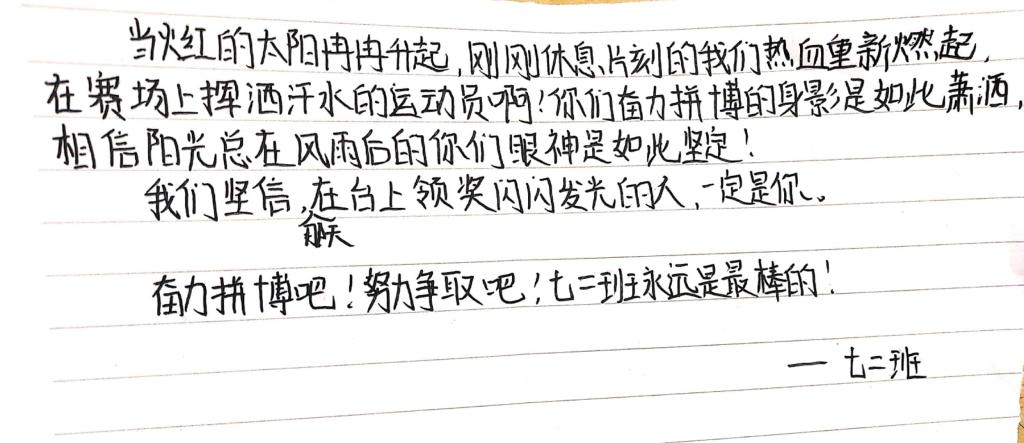 当火红的太阳冉冉升起,刚刚休息片刻的我们热血重新燃起,
在赛场上挥洒汗水的运动员啊!你们奋力拼博的身影是如此萧洒,
相信阳光总在风雨后的你们眼神是如此坚定!
我们坚信,在台上领奖闪闪发光的人,一定是你。
奋力拼博吧!努力争取吧!七二班永远是最棒的!
— 七二班